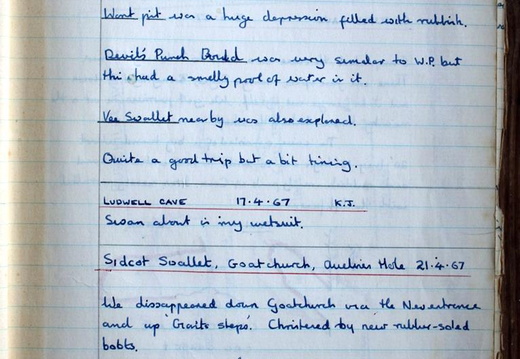 Wont pit was a huge depression filled with rubbish.
Devil's Punch Bould was very similar to W.P. but
this had a smelly pool of water in it.
Vee Swallet nearby was also explored.
Quite a good trip but a bit tiring.
LUDWELL CAVE 17.4.67 K.J.
Swam about in my wetsuit.
Sidcot Swallet, Goatchurch, Aveline's Hole 21.4.67
We dissappeared down Goatchurch via the New entrance
and up 'Giants steps'. Christered by new rubber-soled
boots.